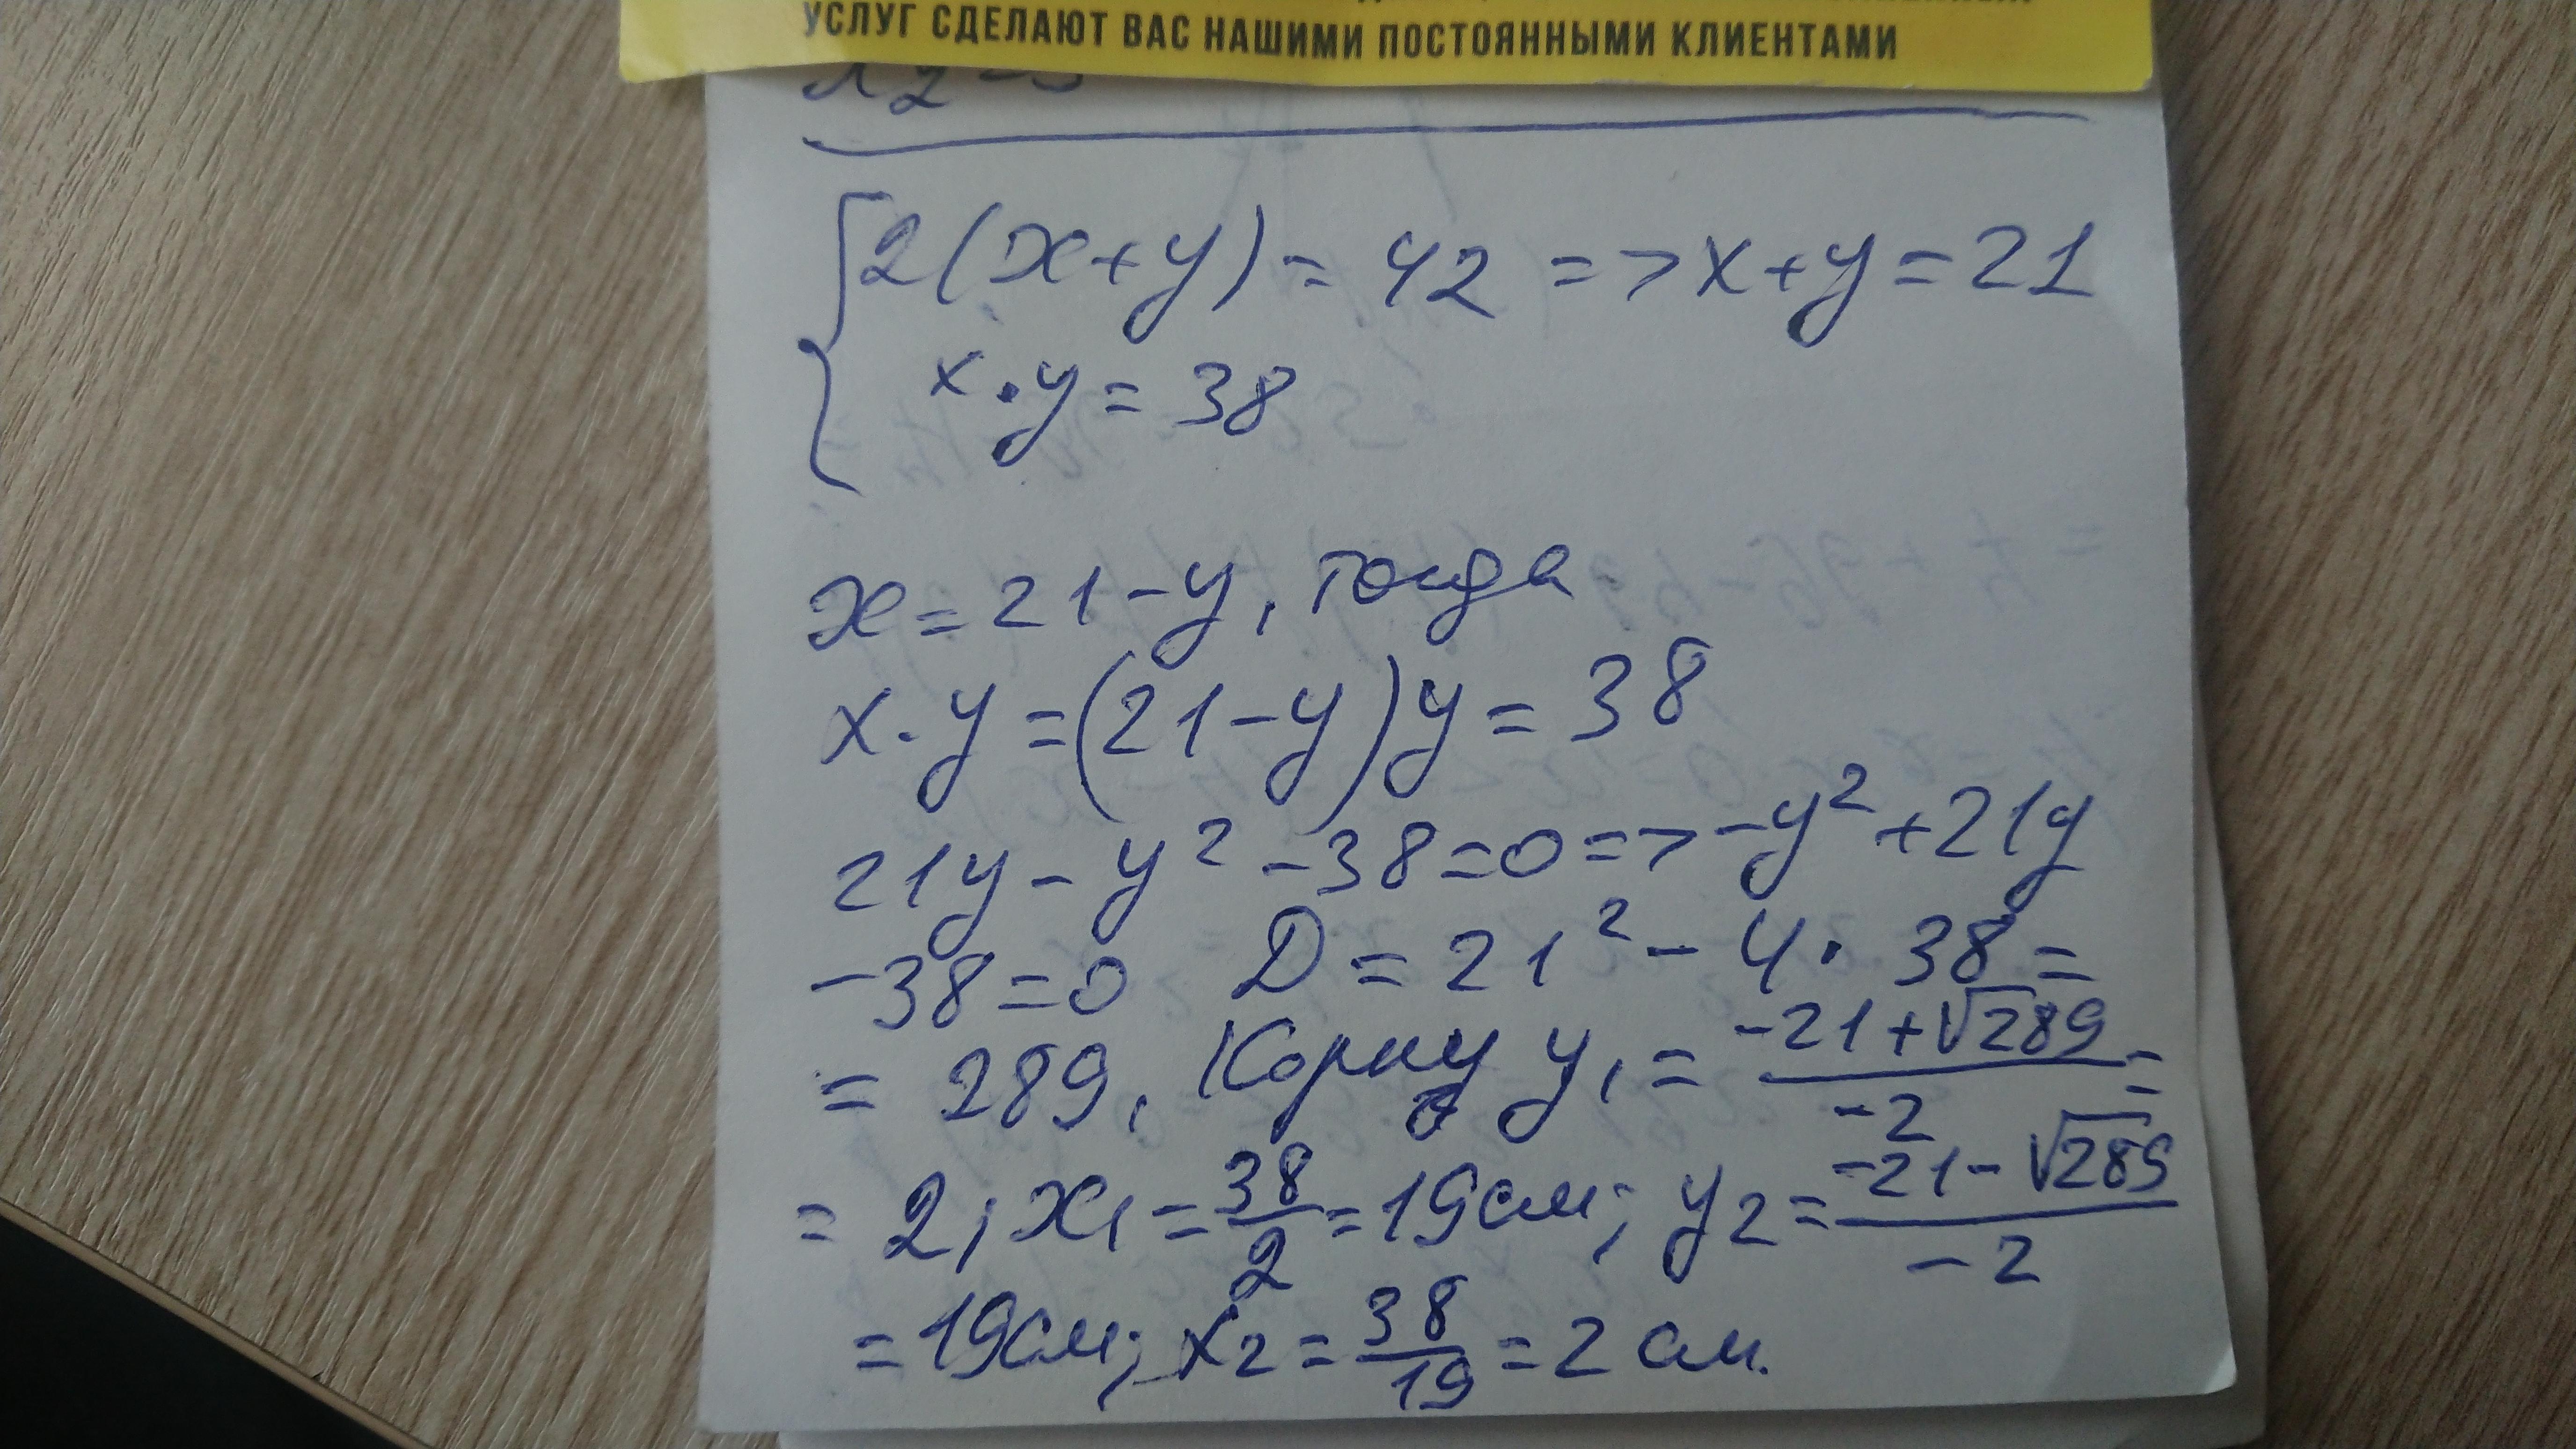 УСЛУГ СДЕЛАЮТ ВАС НАШИМИ ПОСТОЯННЫМИ КЛИЕНТАМИ
2(x+y) = 42 => x+y = 21
x·y = 38
x = 21-y, тогда
x·y = (21-y)y = 38
21y - y² - 38 = 0 => -y² + 21y
-38 = 0 D = 21² - 4·38 =
= 289, Корни y₁ = (-21+√289)/(-2) =
= 2; x₁ = 38/2 = 19см; y₂ = (-21-√289)/(-2)
= 19см; x₂ = 38/19 = 2 см.